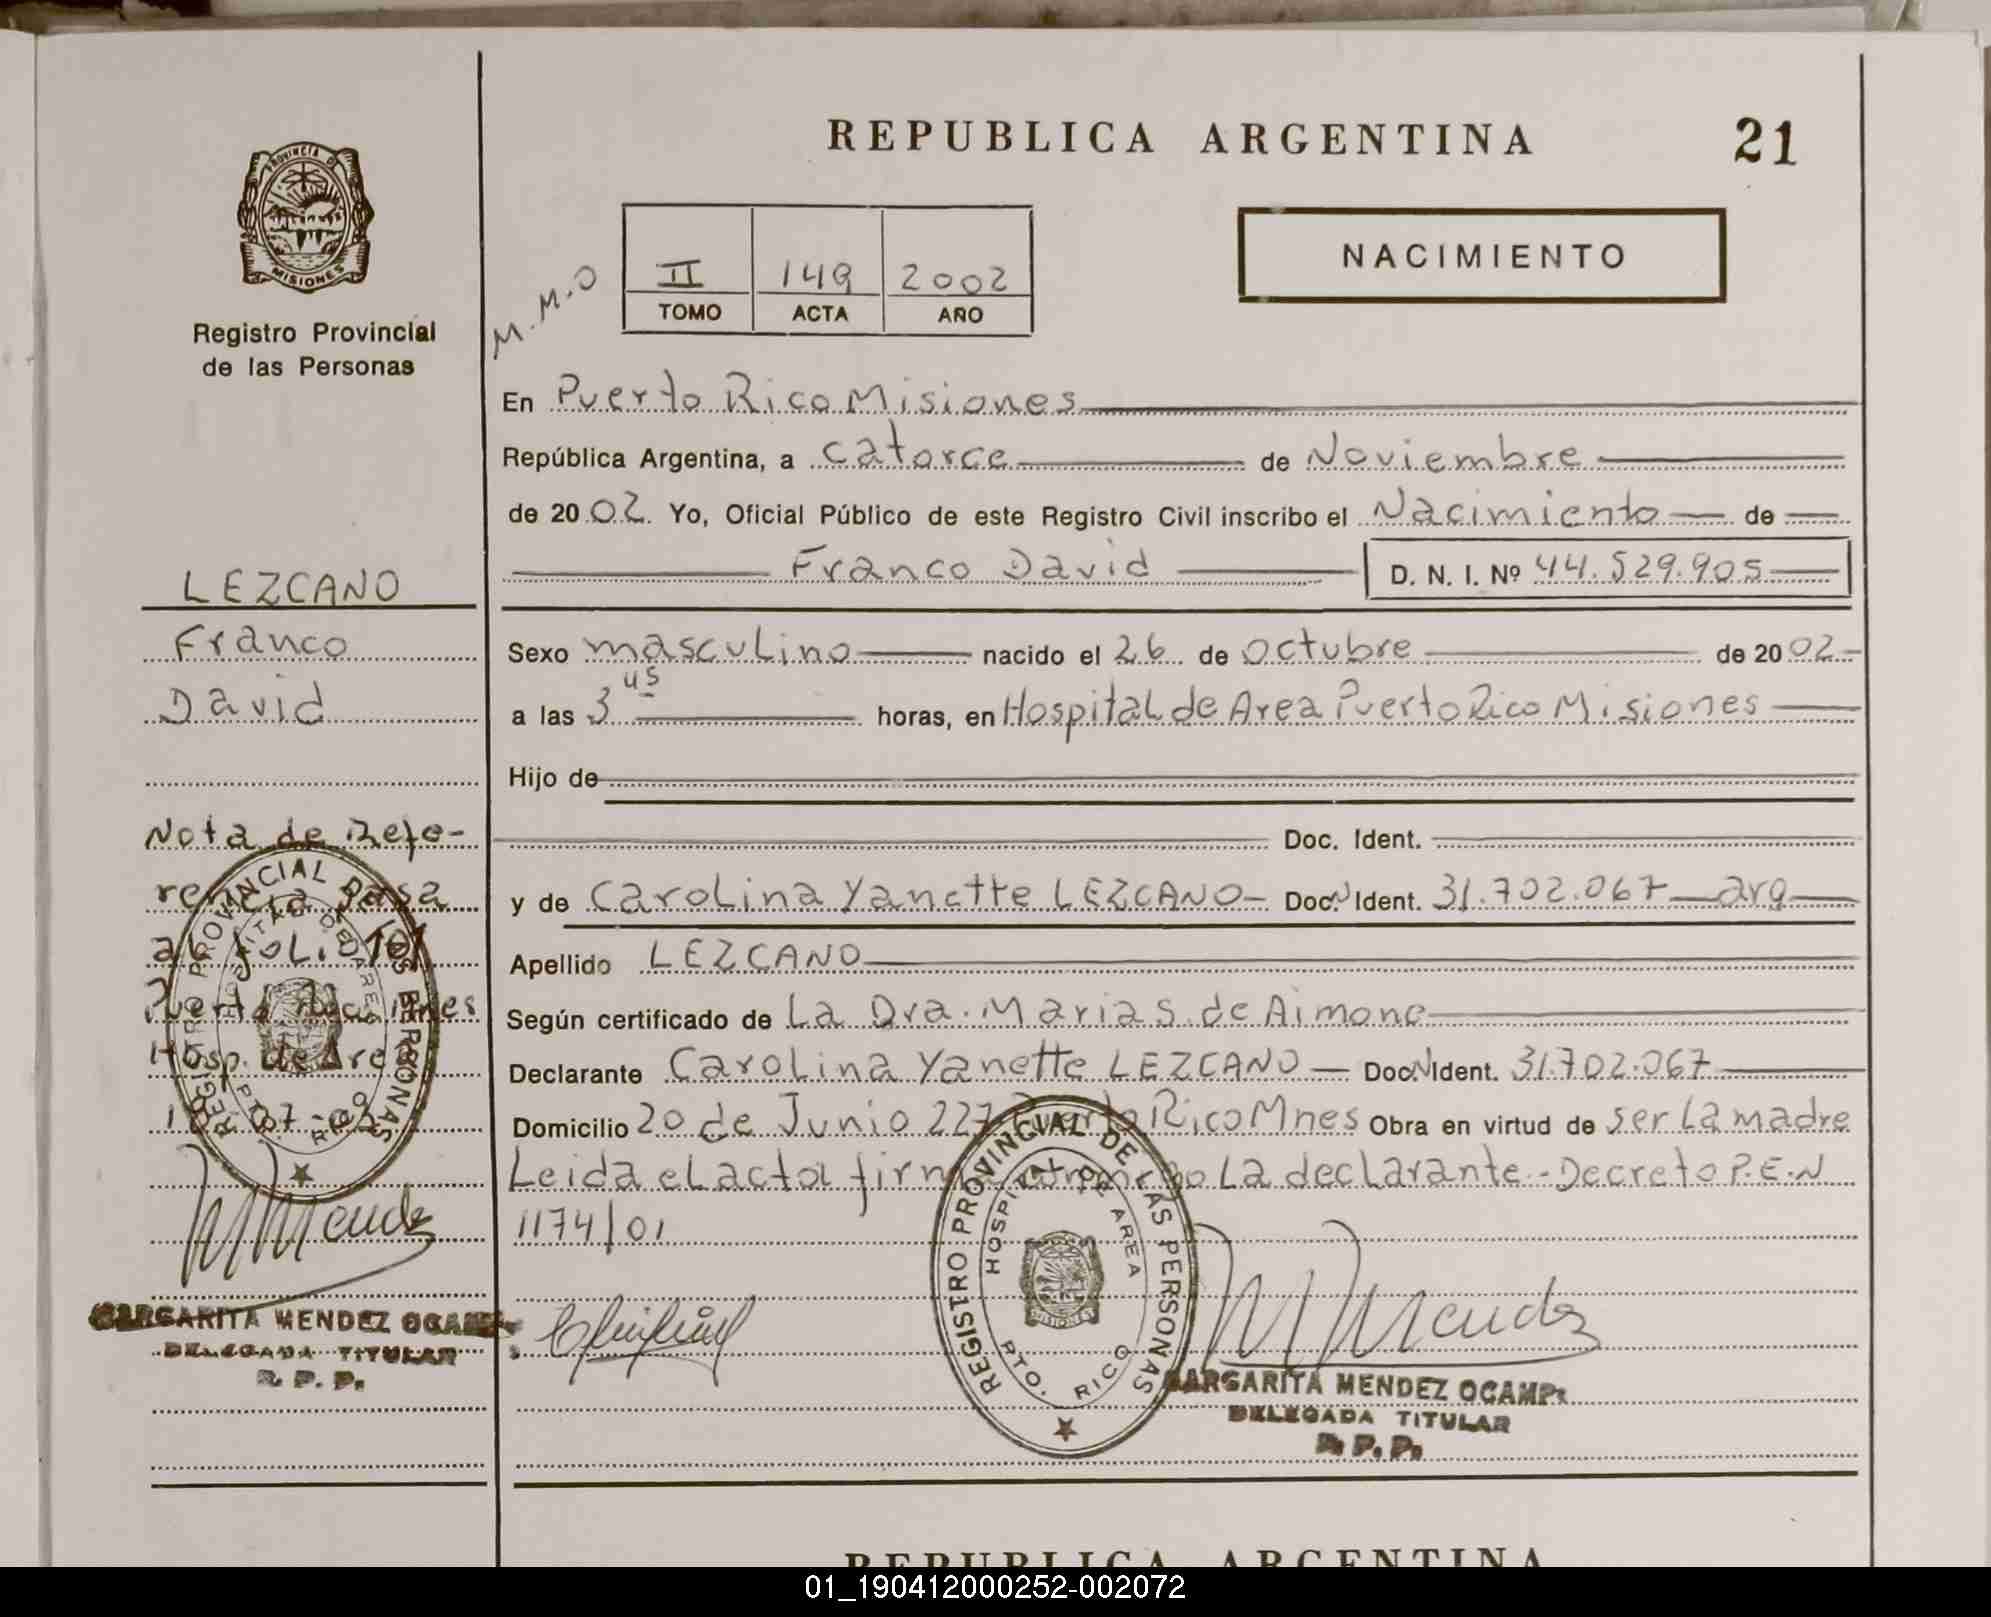 REPUBLICA ARGENTINA
21
PROVINCIA DE
MISIONES
Registro Provincial
de las Personas
M.M.O
II 149 2002
TOMO ACTA AÑO
NACIMIENTO
En Puerto Rico Misiones
República Argentina, a catorce de Noviembre
de 2002. Yo, Oficial Público de este Registro Civil inscribo el Nacimiento de
Franco David D. N. I. Nº 44.529.905
Sexo masculino nacido el 26 de octubre de 2002
a las 3 45 horas, en Hospital de Area Puerto Rico Misiones
Hijo de
Doc. Ident.
y de Carolina Yanette LEZCANO Doc. N Ident. 31.702.067 arg
Apellido LEZCANO
Según certificado de La Dra. Marias de Aimone
Declarante Carolina Yanette LEZCANO Doc. N Ident. 31.702.067
Domicilio 20 de Junio 227 Puerto Rico Mnes Obra en virtud de ser La madre
Leida el acta firma conmigo La declarante.- Decreto P.E.N
1174/01
REGISTRO PROVINCIAL DE LAS PERSONAS
HOSPITAL DE AREA
PTO. RICO
MISIONES
M Mendez
MARGARITA MENDEZ OCAMPO
DELEGADA TITULAR
R. P. P.
LEZCANO
Franco
David
Nota de Refe-
rencia pasa
al folio
Puerto Rico Mnes
Hosp. de Area
REGISTRO PROVINCIAL DE LAS PERSONAS
HOSPITAL DE AREA
PTO. RICO
M Mendez
MARGARITA MENDEZ OCAMPO
DELEGADA TITULAR
R. P. P.
REPUBLICA ARGENTINA
01_190412000252-002072